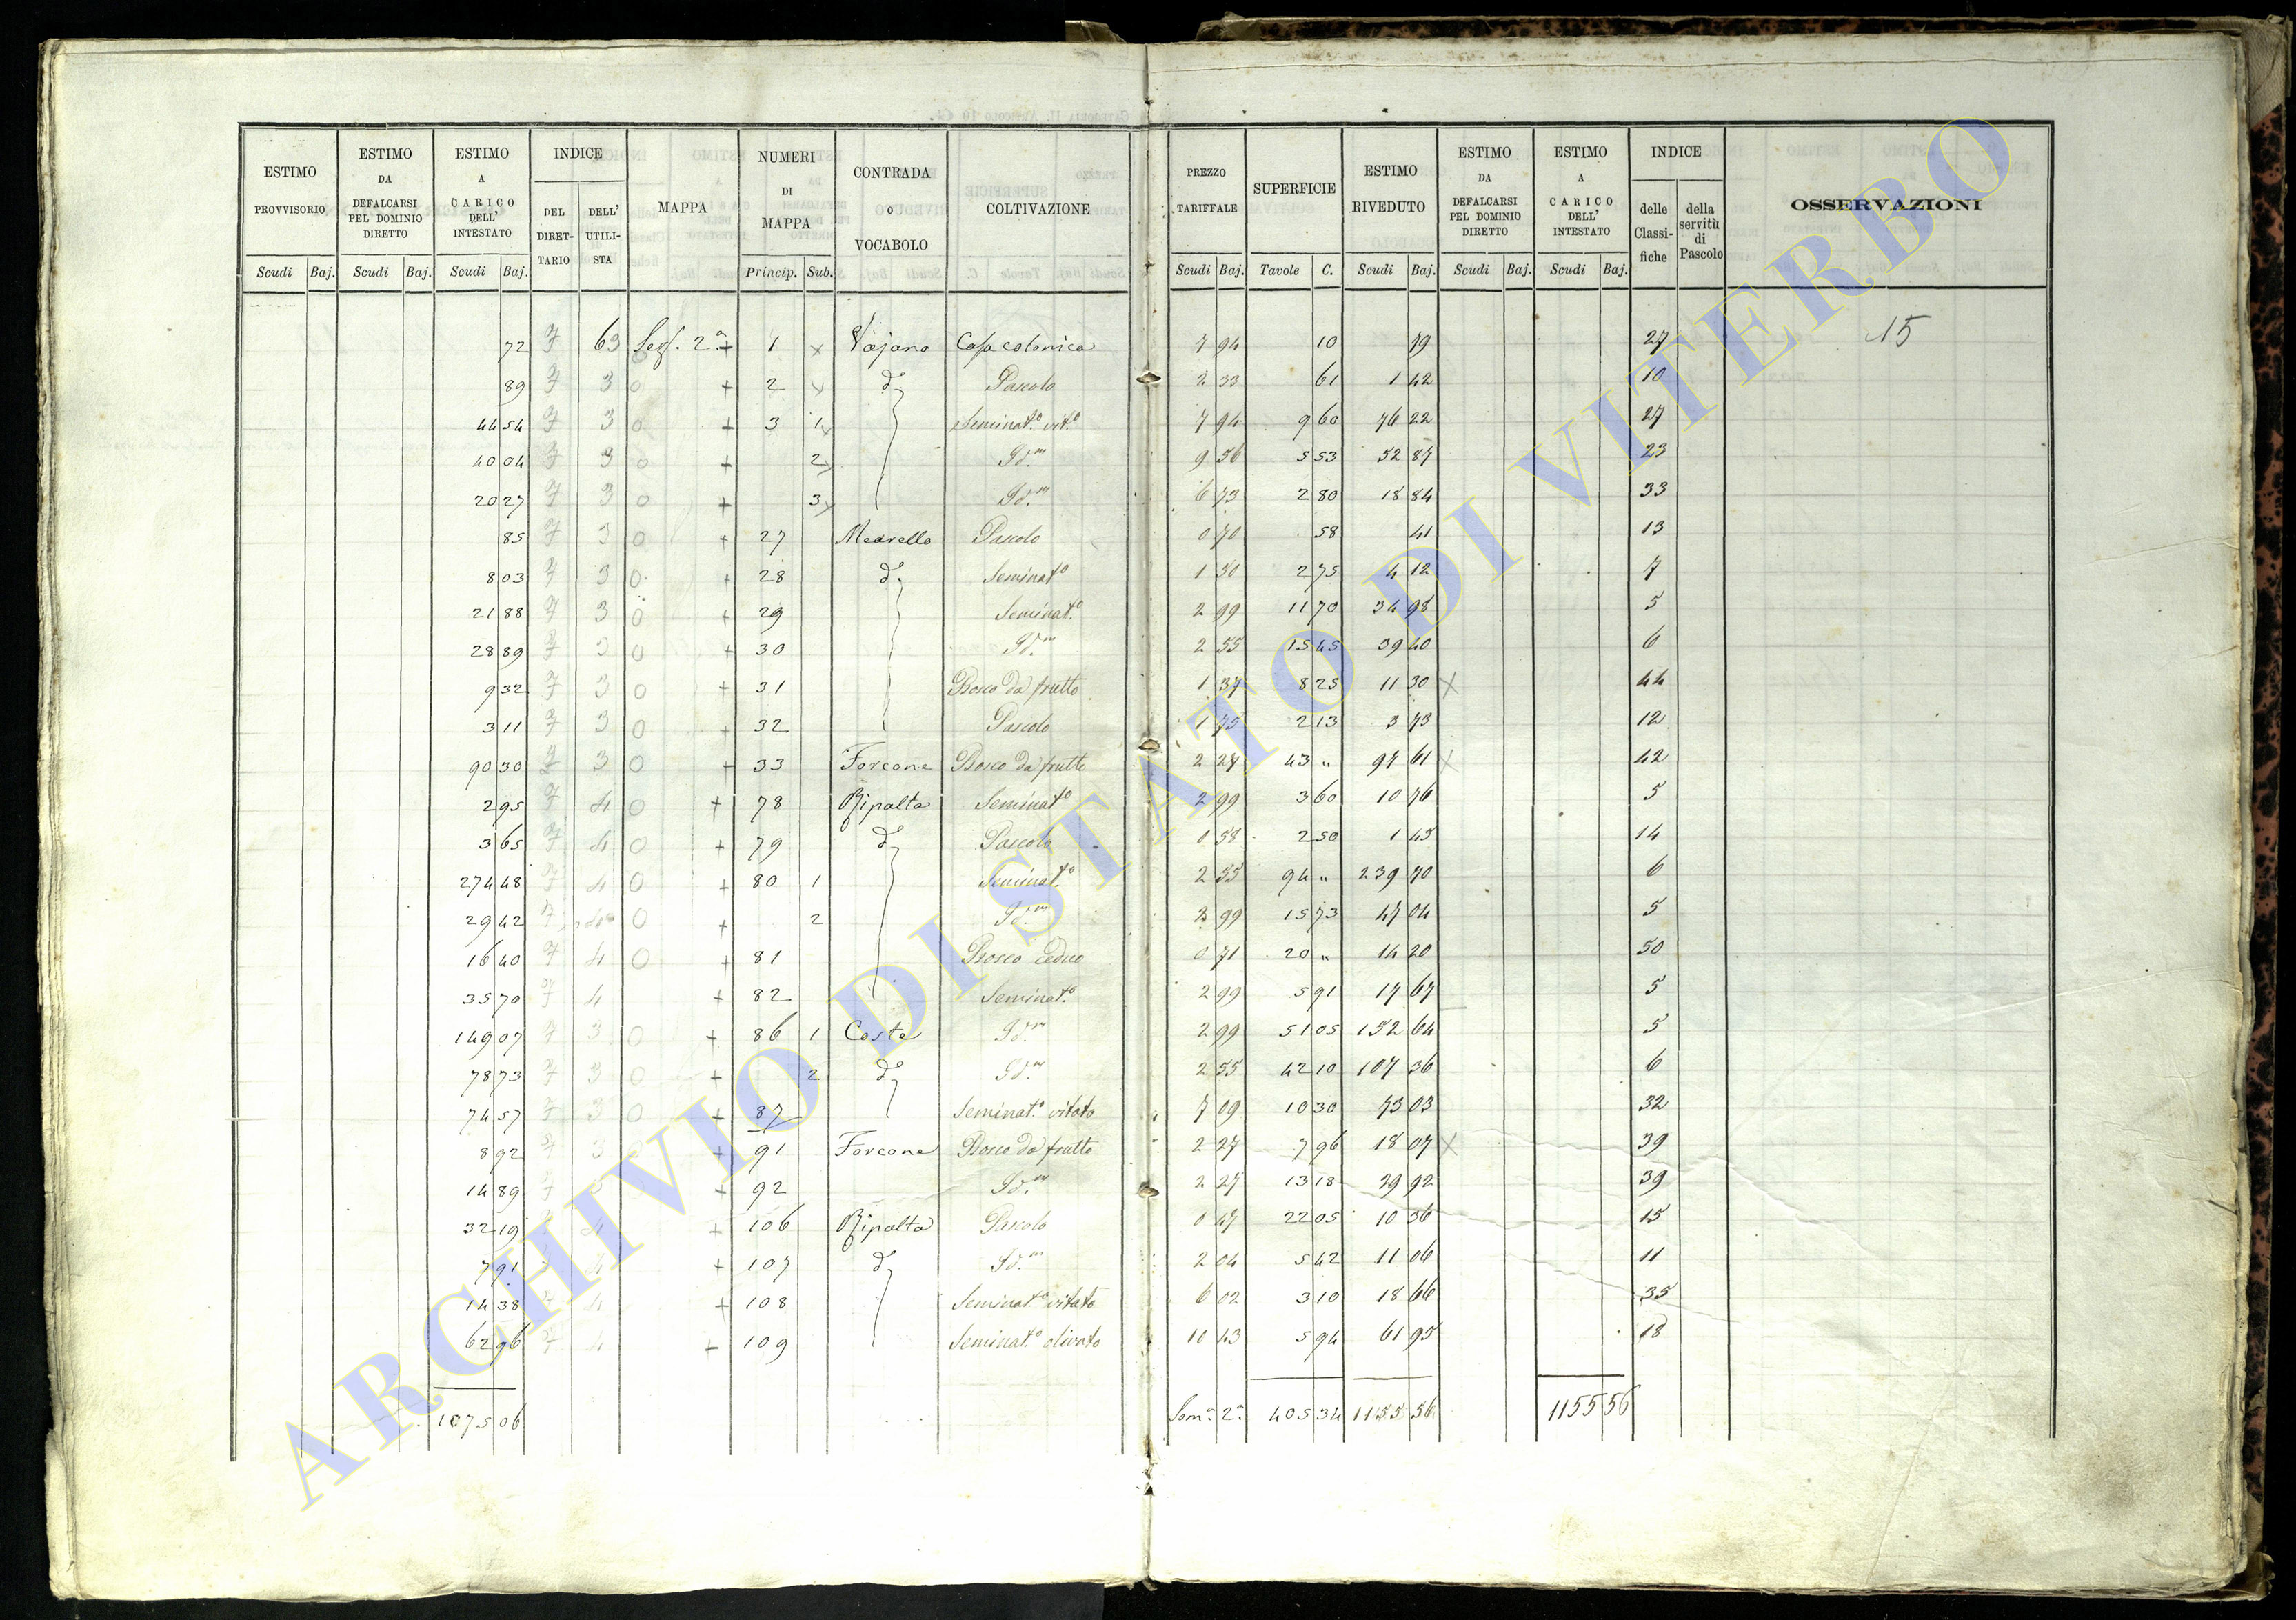 ESTIMO PROVVISORIO Scudi Baj. | ESTIMO DA DEFALCARSI PEL DOMINIO DIRETTO Scudi Baj. | ESTIMO A CARICO DELL' INTESTATO Scudi Baj. | INDICE DEL DIRETTARIO DELL' UTILISTA | MAPPA | NUMERI DI MAPPA Princip. Sub. | CONTRADA o VOCABOLO | COLTIVAZIONE | PREZZO TARIFFALE Scudi Baj. | SUPERFICIE Tavole C. | ESTIMO RIVEDUTO Scudi Baj. | ESTIMO DA DEFALCARSI PEL DOMINIO DIRETTO Scudi Baj. | ESTIMO A CARICO DELL' INTESTATO Scudi Baj. | INDICE delle Classifiche della servitù di Pascolo | OSSERVAZIONI
72 63 Sez. 2ª + 1 x Vajano Casa colonica 7 94 10 79 27 15
89 3 0 + 2 x d° Pascolo 2 33 61 1 42 10
44 54 3 0 + 3 1 x Seminat.° vit.° 7 94 9 60 76 22 27
40 04 3 0 + 2 x Id.m 9 56 5 53 52 87 23
20 27 3 0 + 3 x Id.m 6 73 2 80 18 84 33
85 3 0 + 27 Mearello Pascolo 0 70 58 41 13
8 03 3 0 + 28 d° Seminat° 1 50 2 75 4 12 7
21 88 3 0 + 29 Seminat.° 2 99 11 70 34 98 5
28 89 3 0 + 30 Id.m 2 55 15 45 39 40 6
9 32 3 0 + 31 Bosco da frutto 1 37 8 25 11 30 x 44
3 11 3 0 + 32 Pascolo 1 75 2 13 3 73 12
90 30 3 0 + 33 Forcone Bosco da frutto 2 27 43 " 97 61 x 42
2 95 4 0 + 78 Ripalta Seminat° 2 99 3 60 10 76 5
3 65 4 0 + 79 d° Pascolo 0 58 2 50 1 45 14
274 48 4 0 + 80 1 Seminat.° 2 55 94 " 239 70 6
29 42 4 0 + 2 Id.m 2 99 15 73 47 04 5
16 40 4 0 + 81 Bosco ceduo 0 71 20 " 14 20 50
35 70 4 + 82 Seminat.° 2 99 5 91 17 67 5
149 07 3 0 + 86 1 Costa Id.m 2 99 51 05 152 64 5
78 73 3 0 + 2 d° Id.m 2 55 42 10 107 36 6
74 57 3 0 + 87 Seminat.° vitato 7 09 10 30 73 03 32
8 92 3 + 91 Forcone Bosco da frutto 2 27 7 96 18 07 x 39
14 89 3 + 92 Id.m 2 27 13 18 29 92 39
32 19 4 + 106 Ripalta Pascolo 0 47 22 05 10 36 15
7 91 4 + 107 d° Id.m 2 04 5 42 11 06 11
14 38 4 + 108 Seminat.° vitato 6 02 3 10 18 66 35
62 96 4 + 109 Seminat.° olivato 10 43 5 94 61 95 18
1075 06 Som.ª 2ª 405 34 1155 56 1155 56
ARCHIVIO DI STATO DI VITERBO